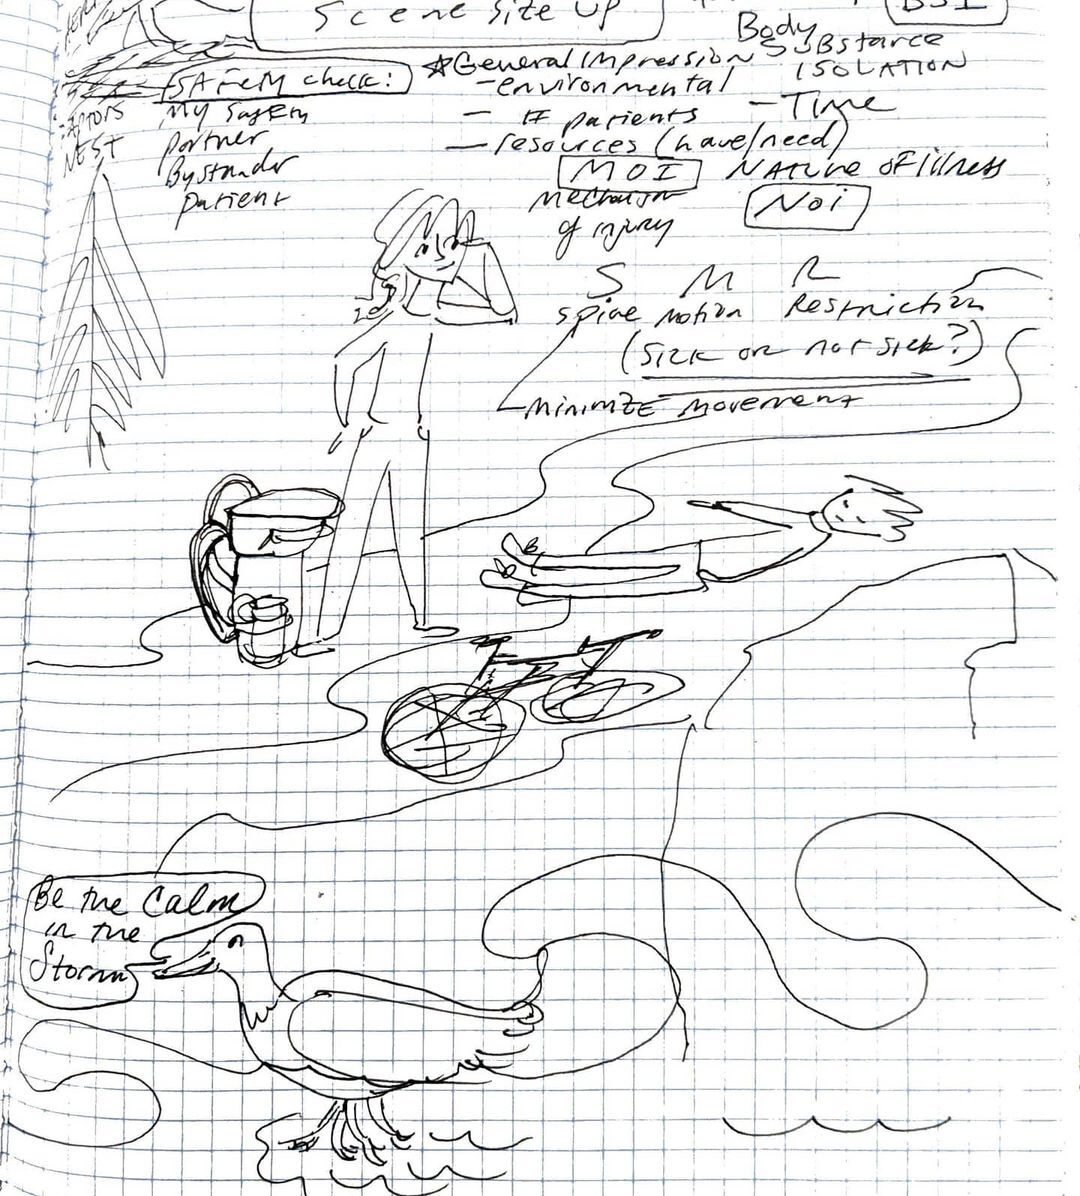 Scene Size Up
BSI
Body
Substance
ISOLATION
SAfety check:
My Safety
Partner
Bystander
patient
RAPTORS
NEST
☆General Impression
- environmental
- # patients
- Time
- resources (have/need)
MOI
Mechanism
of injury
NATURE OF illness
NOi
S M R
Spine Motion Restriction
(Sick or not sick?)
- MINIMIZE movement
Be the Calm
in the
Storm